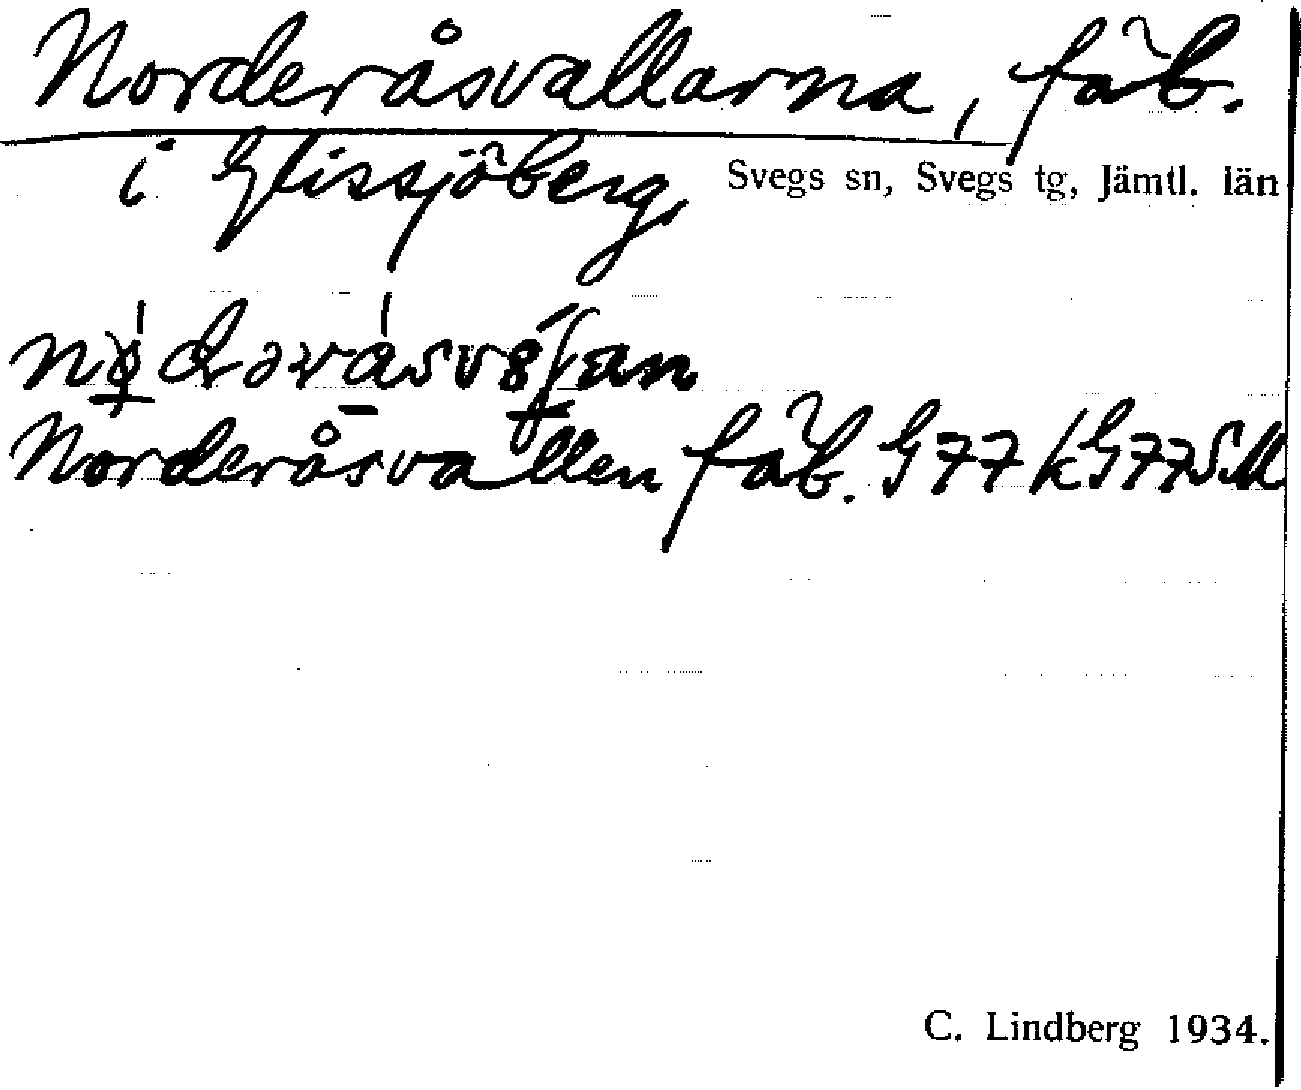 Norderåsvallarna, fäb.
i Glissjöberg, Svegs sn, Svegs tg, Jämtl. län
Norderåsvallen fäb. G77 kG77SM
C. Lindberg 1934.